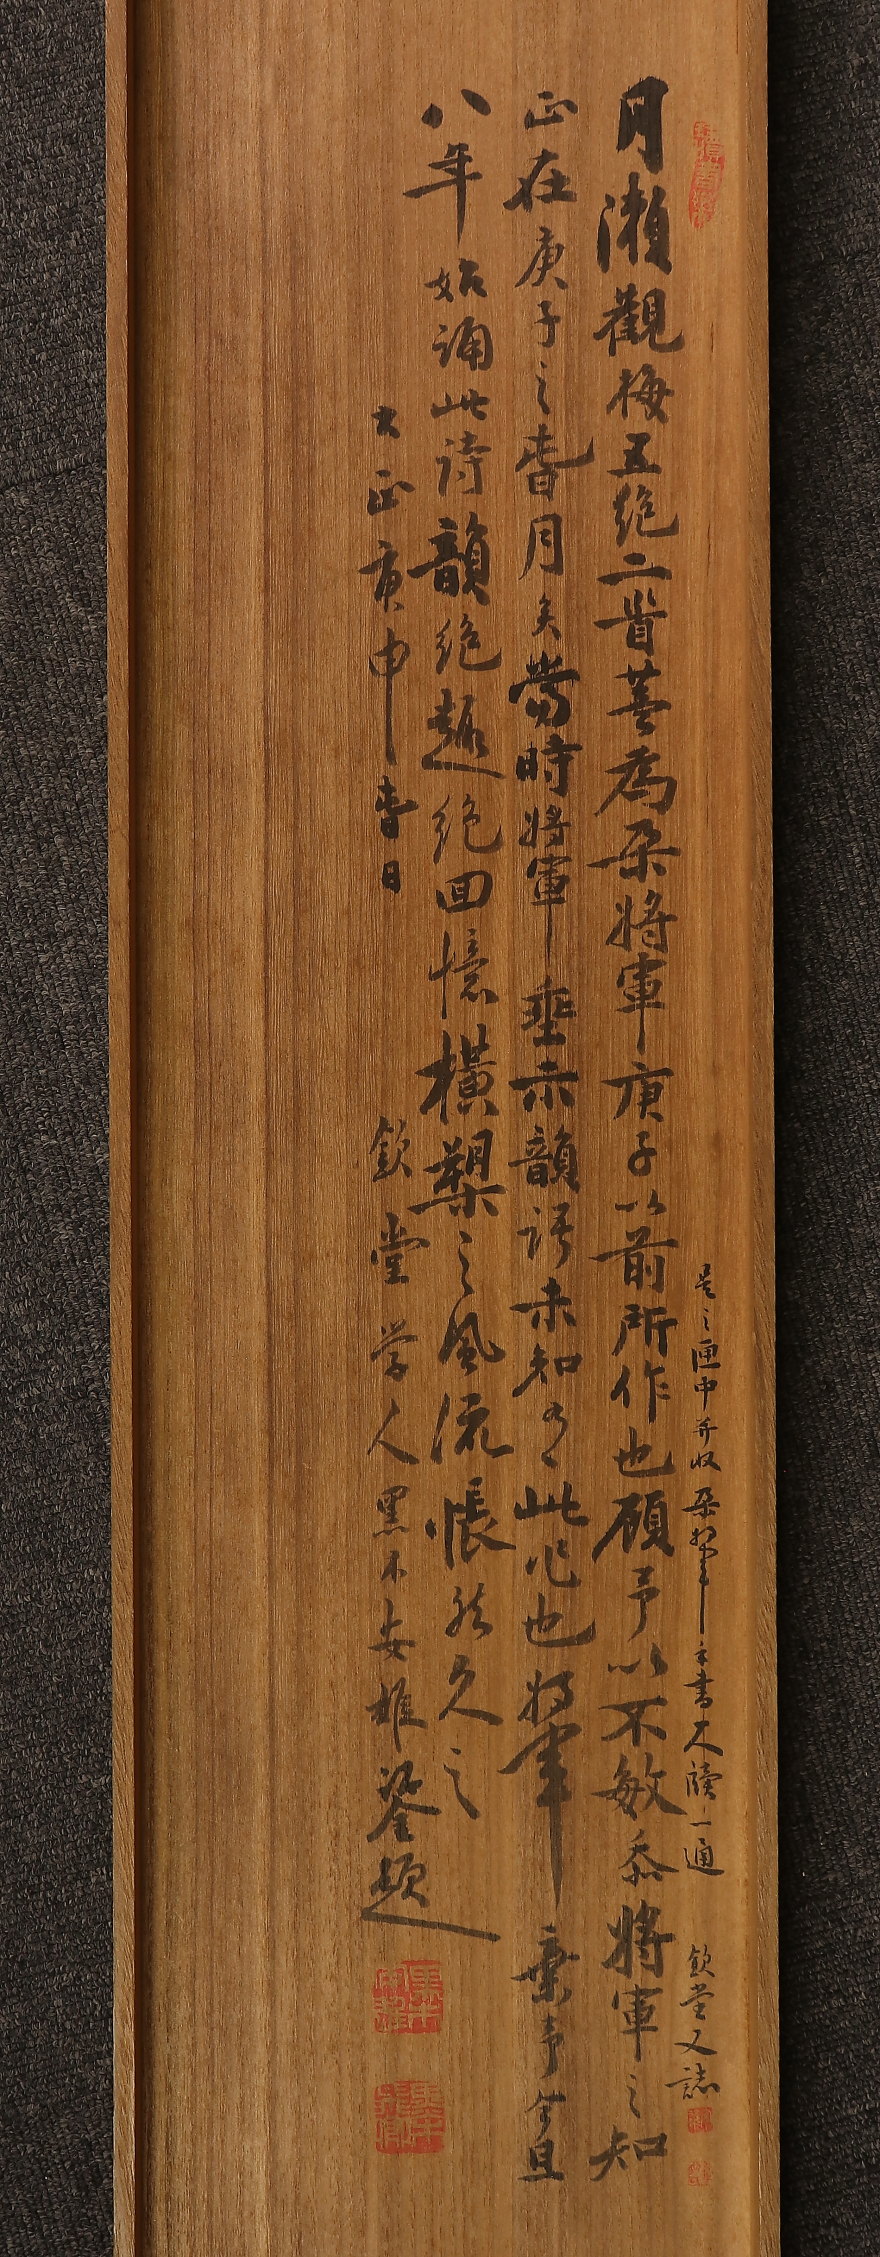 月瀬觀梅五絶二首蓋為朶將軍庚子以前所作也顧予以不敏忝將軍之知
正在庚子之春月矣當時将軍垂示韻語未知有此作也将軍棄予今且
八年始誦此詩韻絶趣絶回憶横槊之風流悵然久之
大正庚申春日 欽堂学人黒木安雄鑒題
是之匣中并收朶将軍手書大牘一通 欽堂又誌